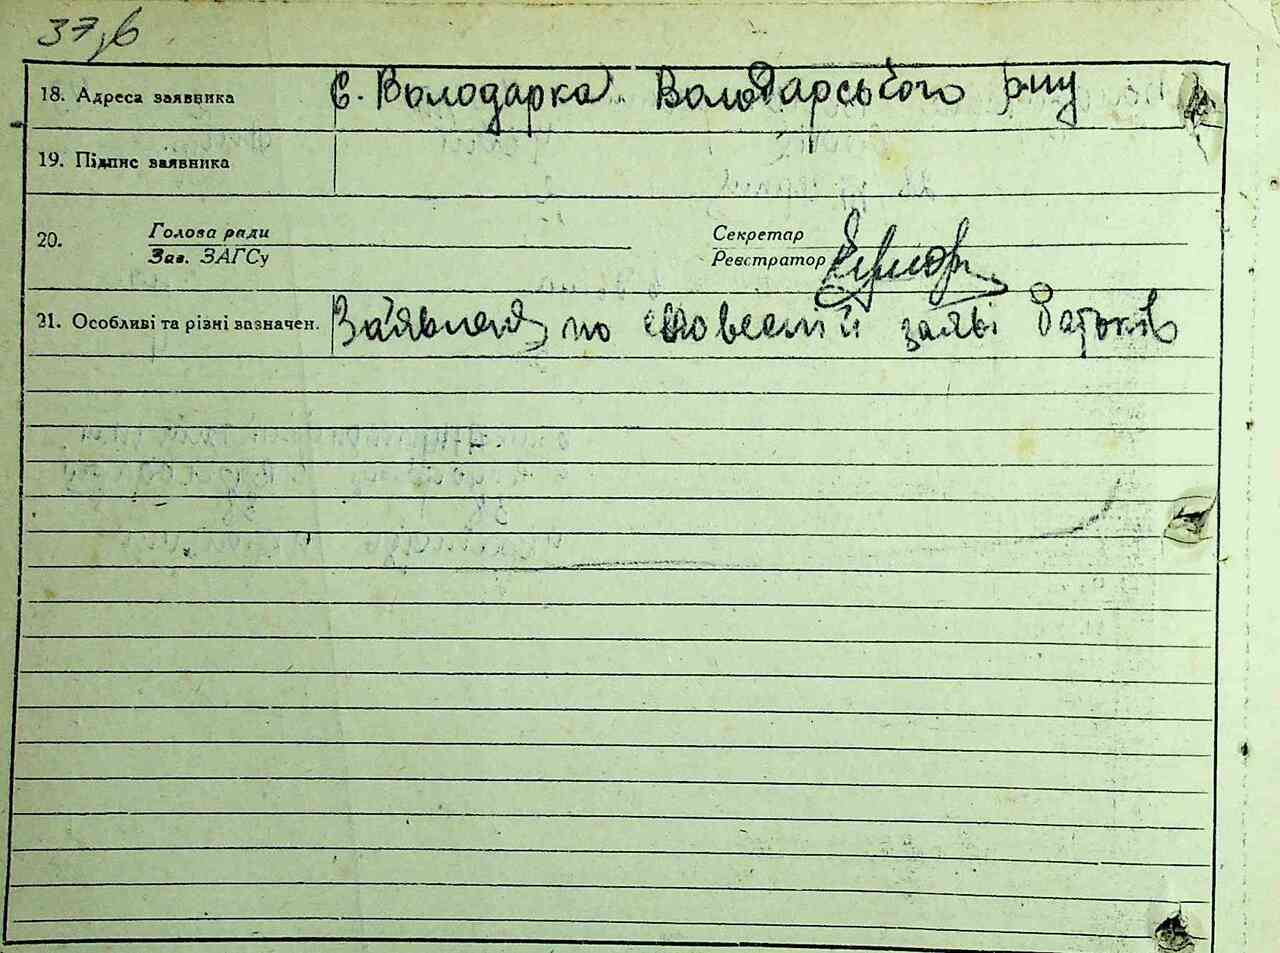 37,б
18. Адреса заявника с. Володарка Володарського р-ну
19. Підпис заявника
20. Голова ради Секретар
Зав. ЗАГСу Реєстратор
21. Особливі та різні зазначен. Заявлення по словесній заяві батьків